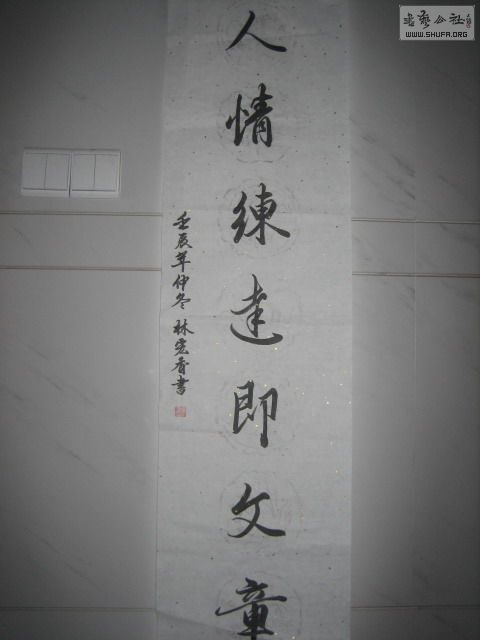 人情練達即文章
壬辰年仲冬 林宏香書
書艺公社
WWW.SHUFA.ORG